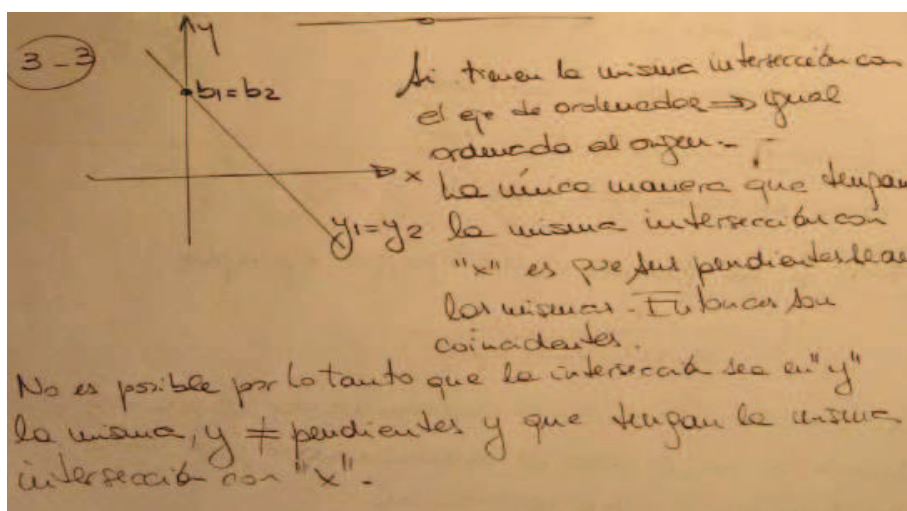 3-3
y
b1=b2
x
y1=y2
Si tienen la misma intersección con
el eje de ordenadas ⇒ igual
ordenada al origen.-
La única manera que tengan
la misma intersección con
"x" es que sus pendientes sean
las mismas. Entonces son
coincidentes.
No es posible por lo tanto que la intersección sea en "y"
la misma, y ≠ pendientes y que tengan la misma
intersección con "x".-